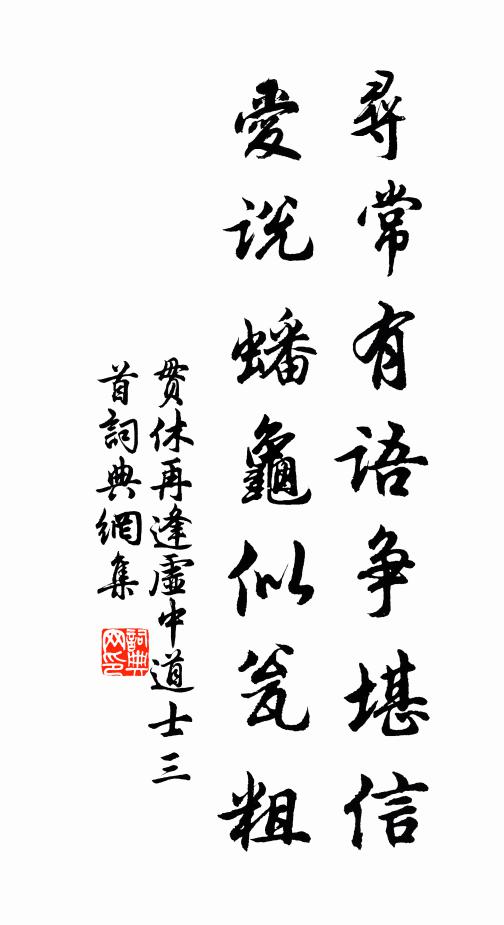 尋常有语争堪信
愛说蟠龜似瓮粗
贯休再逢虛中道士三
首詞典網集
詞典
网印